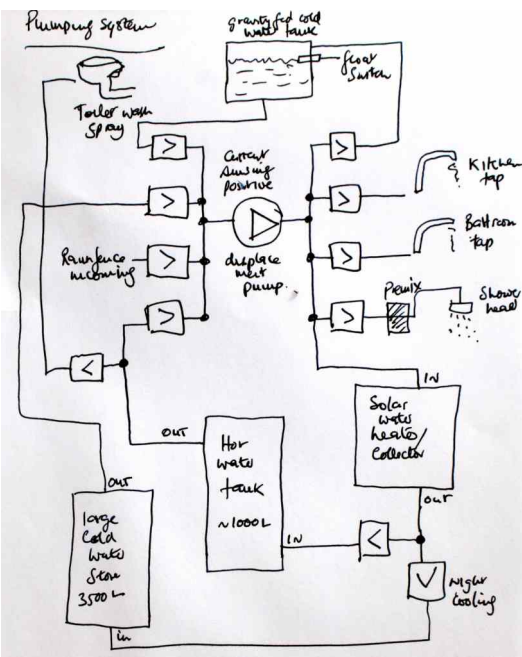 Pumping System
gravity fed cold
water tank
float
switch
Toilet wash
Spray
>
>
Current
sensing
positive
displace
ment
pump.
>
>
Kitchen
tap
>
Bathroom
tap
incoming
>
>
>
Premix
Shower
head
<
IN
Solar
water
heater/
Collector
OUT
OUT
Hot
water
tank
~1000L
IN
<
V
Night
Cooling
OUT
large
Cold
Water
Store
3500L
in